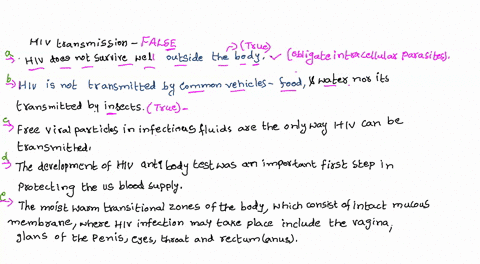 HIV transmission - FALSE
(True)
a. HIV does not survive well outside the body. ✓ (obligate intercellular parasites).
b) HIV is not transmitted by common vehicles - food, & water nor its
transmitted by insects. (True) -
c) Free viral particles in infectious fluids are the only way HIV can be
transmitted.
d) The development of HIV antibody test was an important first step in
Protecting the us blood supply.
e) The moist warm transitional zones of the body, which consist of intact mucous
membrane, where HIV infection may take place include the vagina,
glans of the Penis, eyes, throat and rectum (anus).